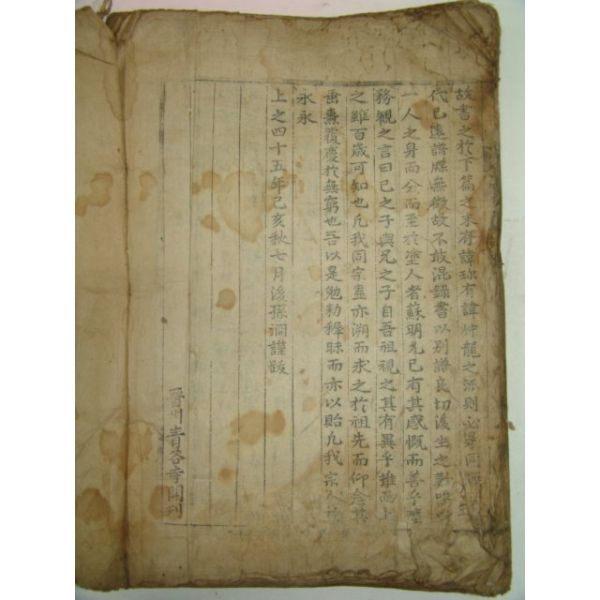 故書之於下篇之末有諱珎有諱仲龍之派則必是同
代已遠譜牒無徵故不敢混錄書以別譜良切後生之
一人之身而分而至於塗人者蘇明允已有其感慨而善乎
務觀之言曰己之子與兄之子自吾祖視之其有異乎推而上
之雖百歲可知也凡我同宗盍亦溯而求之於祖先而仰念其
垂裕覆慶於無窮也吾以是勉勑稺昧而亦以貽凡我宗人
永永
上之四十五年己亥秋七月後孫澗謹跋
晋州青谷寺開刊